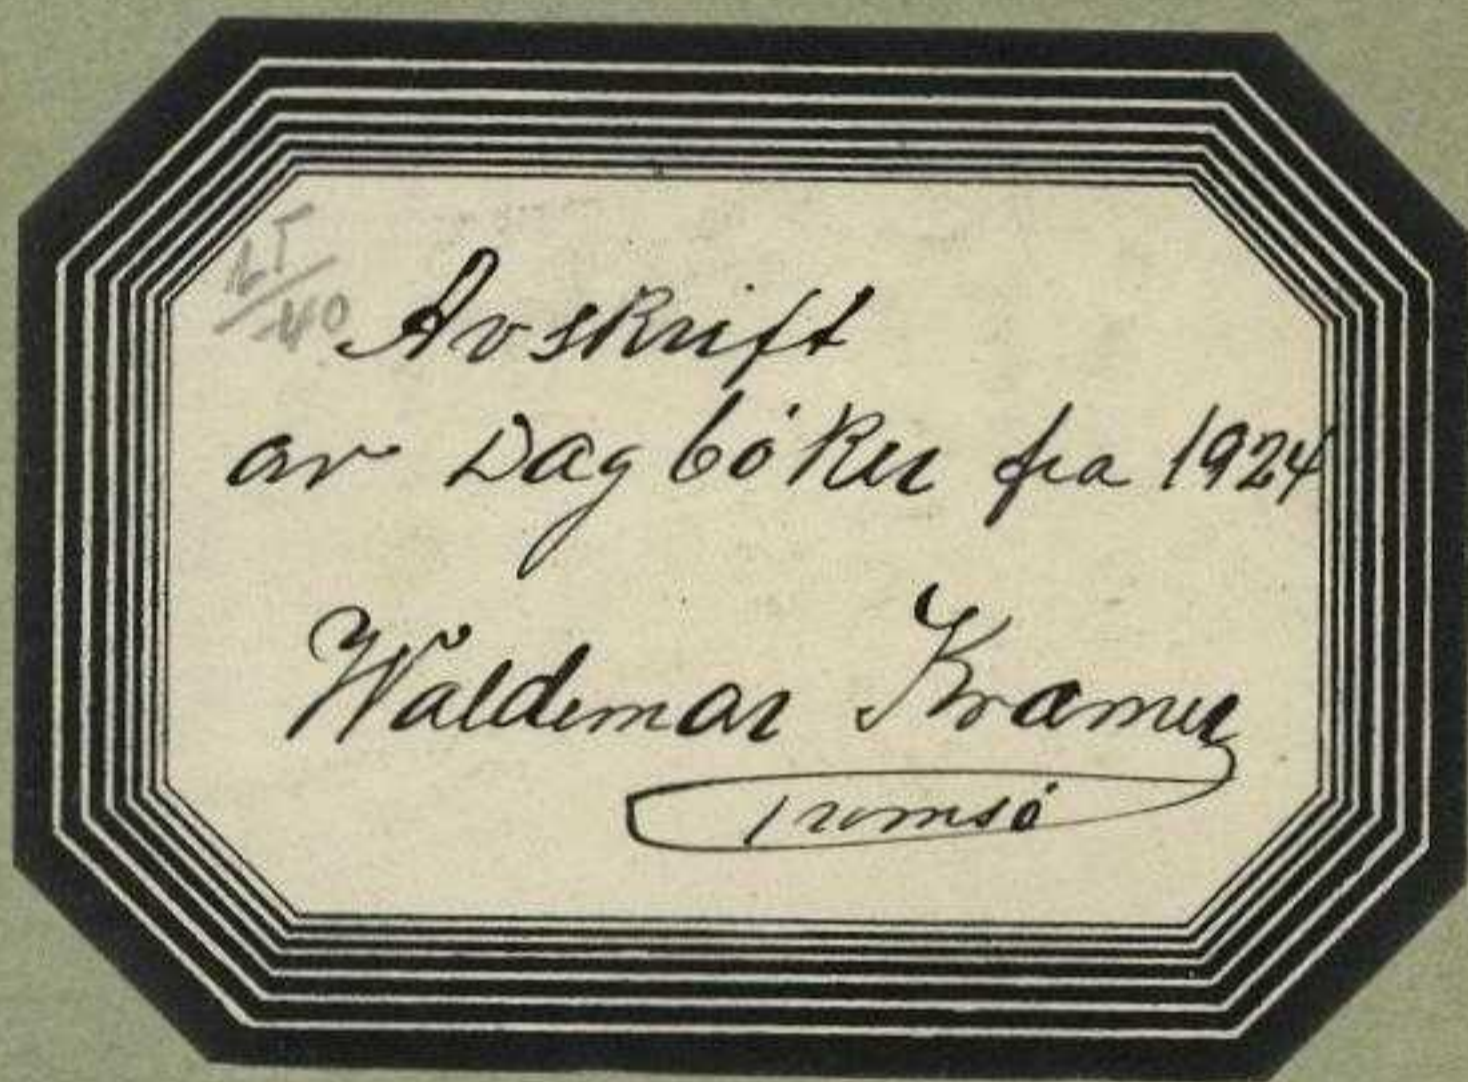 Avskrift
av Dagböker fra 1924
Waldemar Kræmer
Tromsö